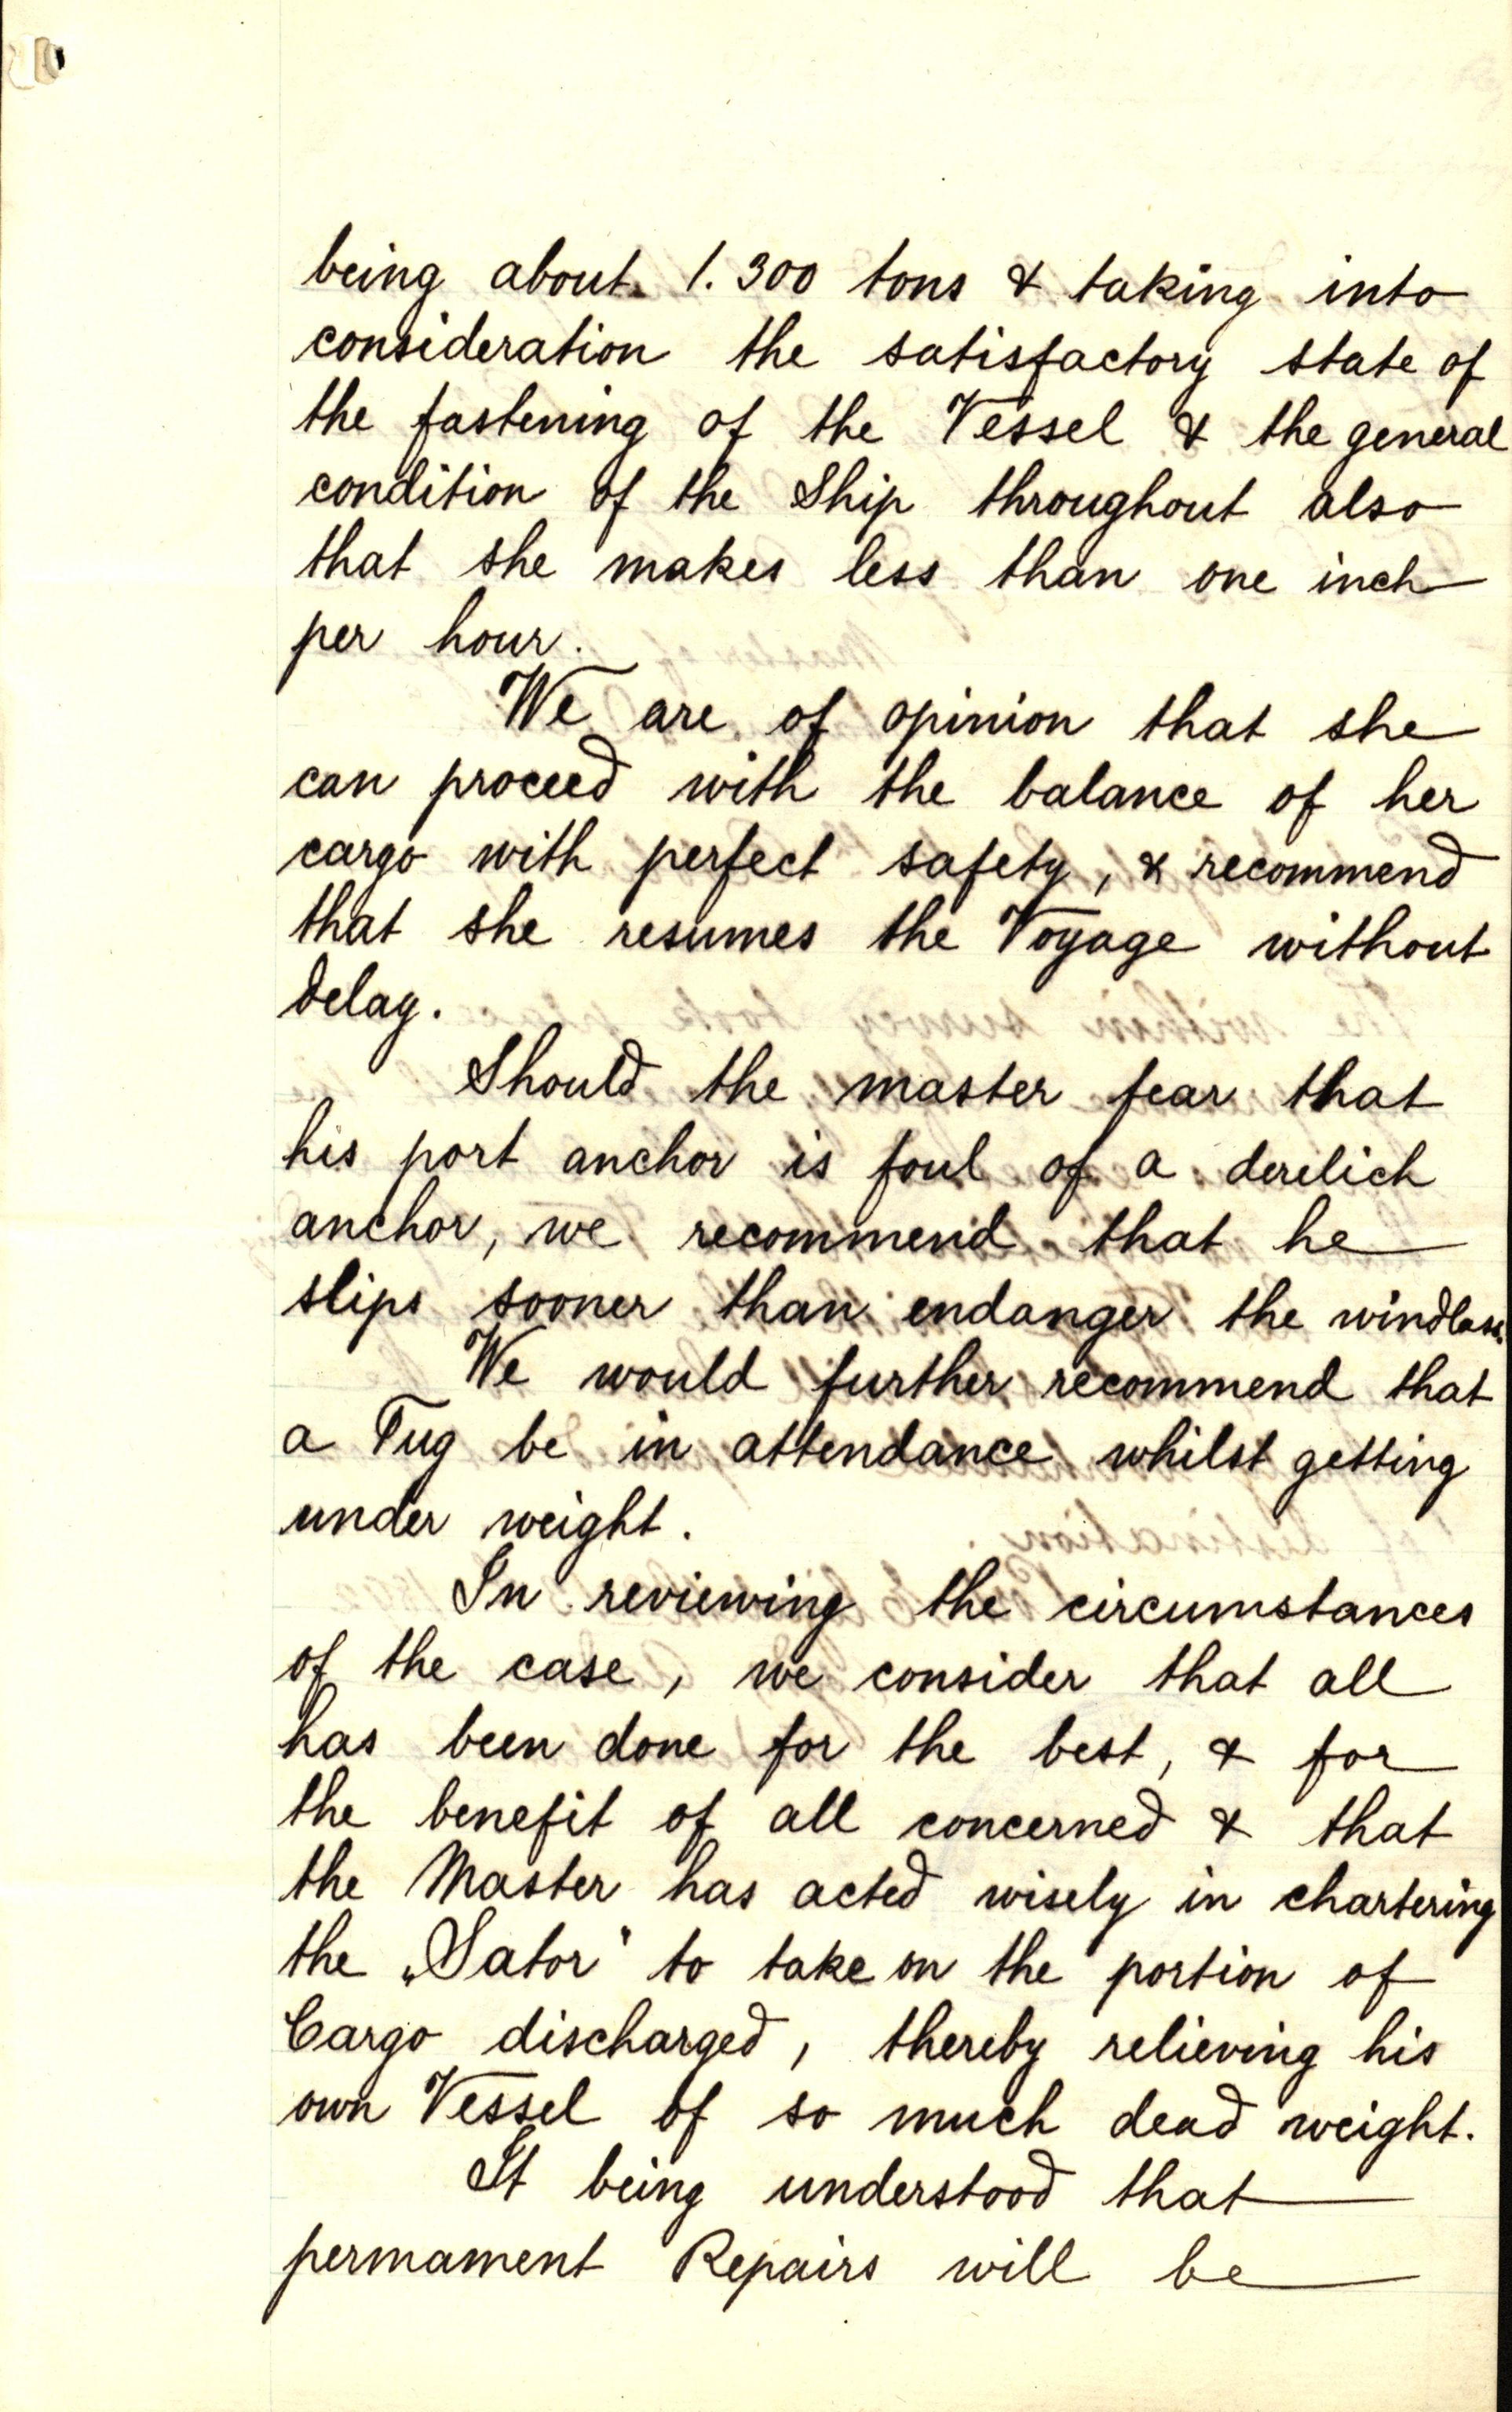 being about 1.300 tons & taking into
consideration the satisfactory state of
the fastening of the Vessel & the general
condition of the Ship throughout also
that she makes less than one inch
per hour.
We are of opinion that she
can proceed with the balance of her
cargo with perfect safety, & recommend
that she resumes the Voyage without
delay.
Should the master fear that
his port anchor is foul of a derelich
anchor, we recommend that he
slips sooner than endanger the windlass.
We would further recommend that
a Tug be in attendance whilst getting
under weight.
In reviewing the circumstances
of the case, we consider that all
has been done for the best, & for
the benefit of all concerned & that
the Master has acted wisely in chartering
the „Sator" to take on the portion of
Cargo discharged, thereby relieving his
own Vessel of so much dead weight.
It being understood that
permament Repairs will be